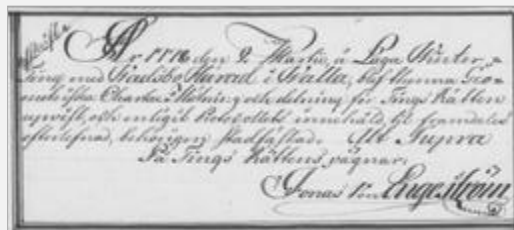 Afskrift
År 1776 den 2 Martii, å Laga Winter
Ting med Wadsbo Härad i Walla, blef denna Geo-
metriska Charta, Mätning och delning för Tings Rätten
upvist, och enligit Protocollets innehåld, til framdeles
efterlefnad, behörigen stadfästad. Ut Supra
På Tings Rättens vägnar.
Jonas von Engeström